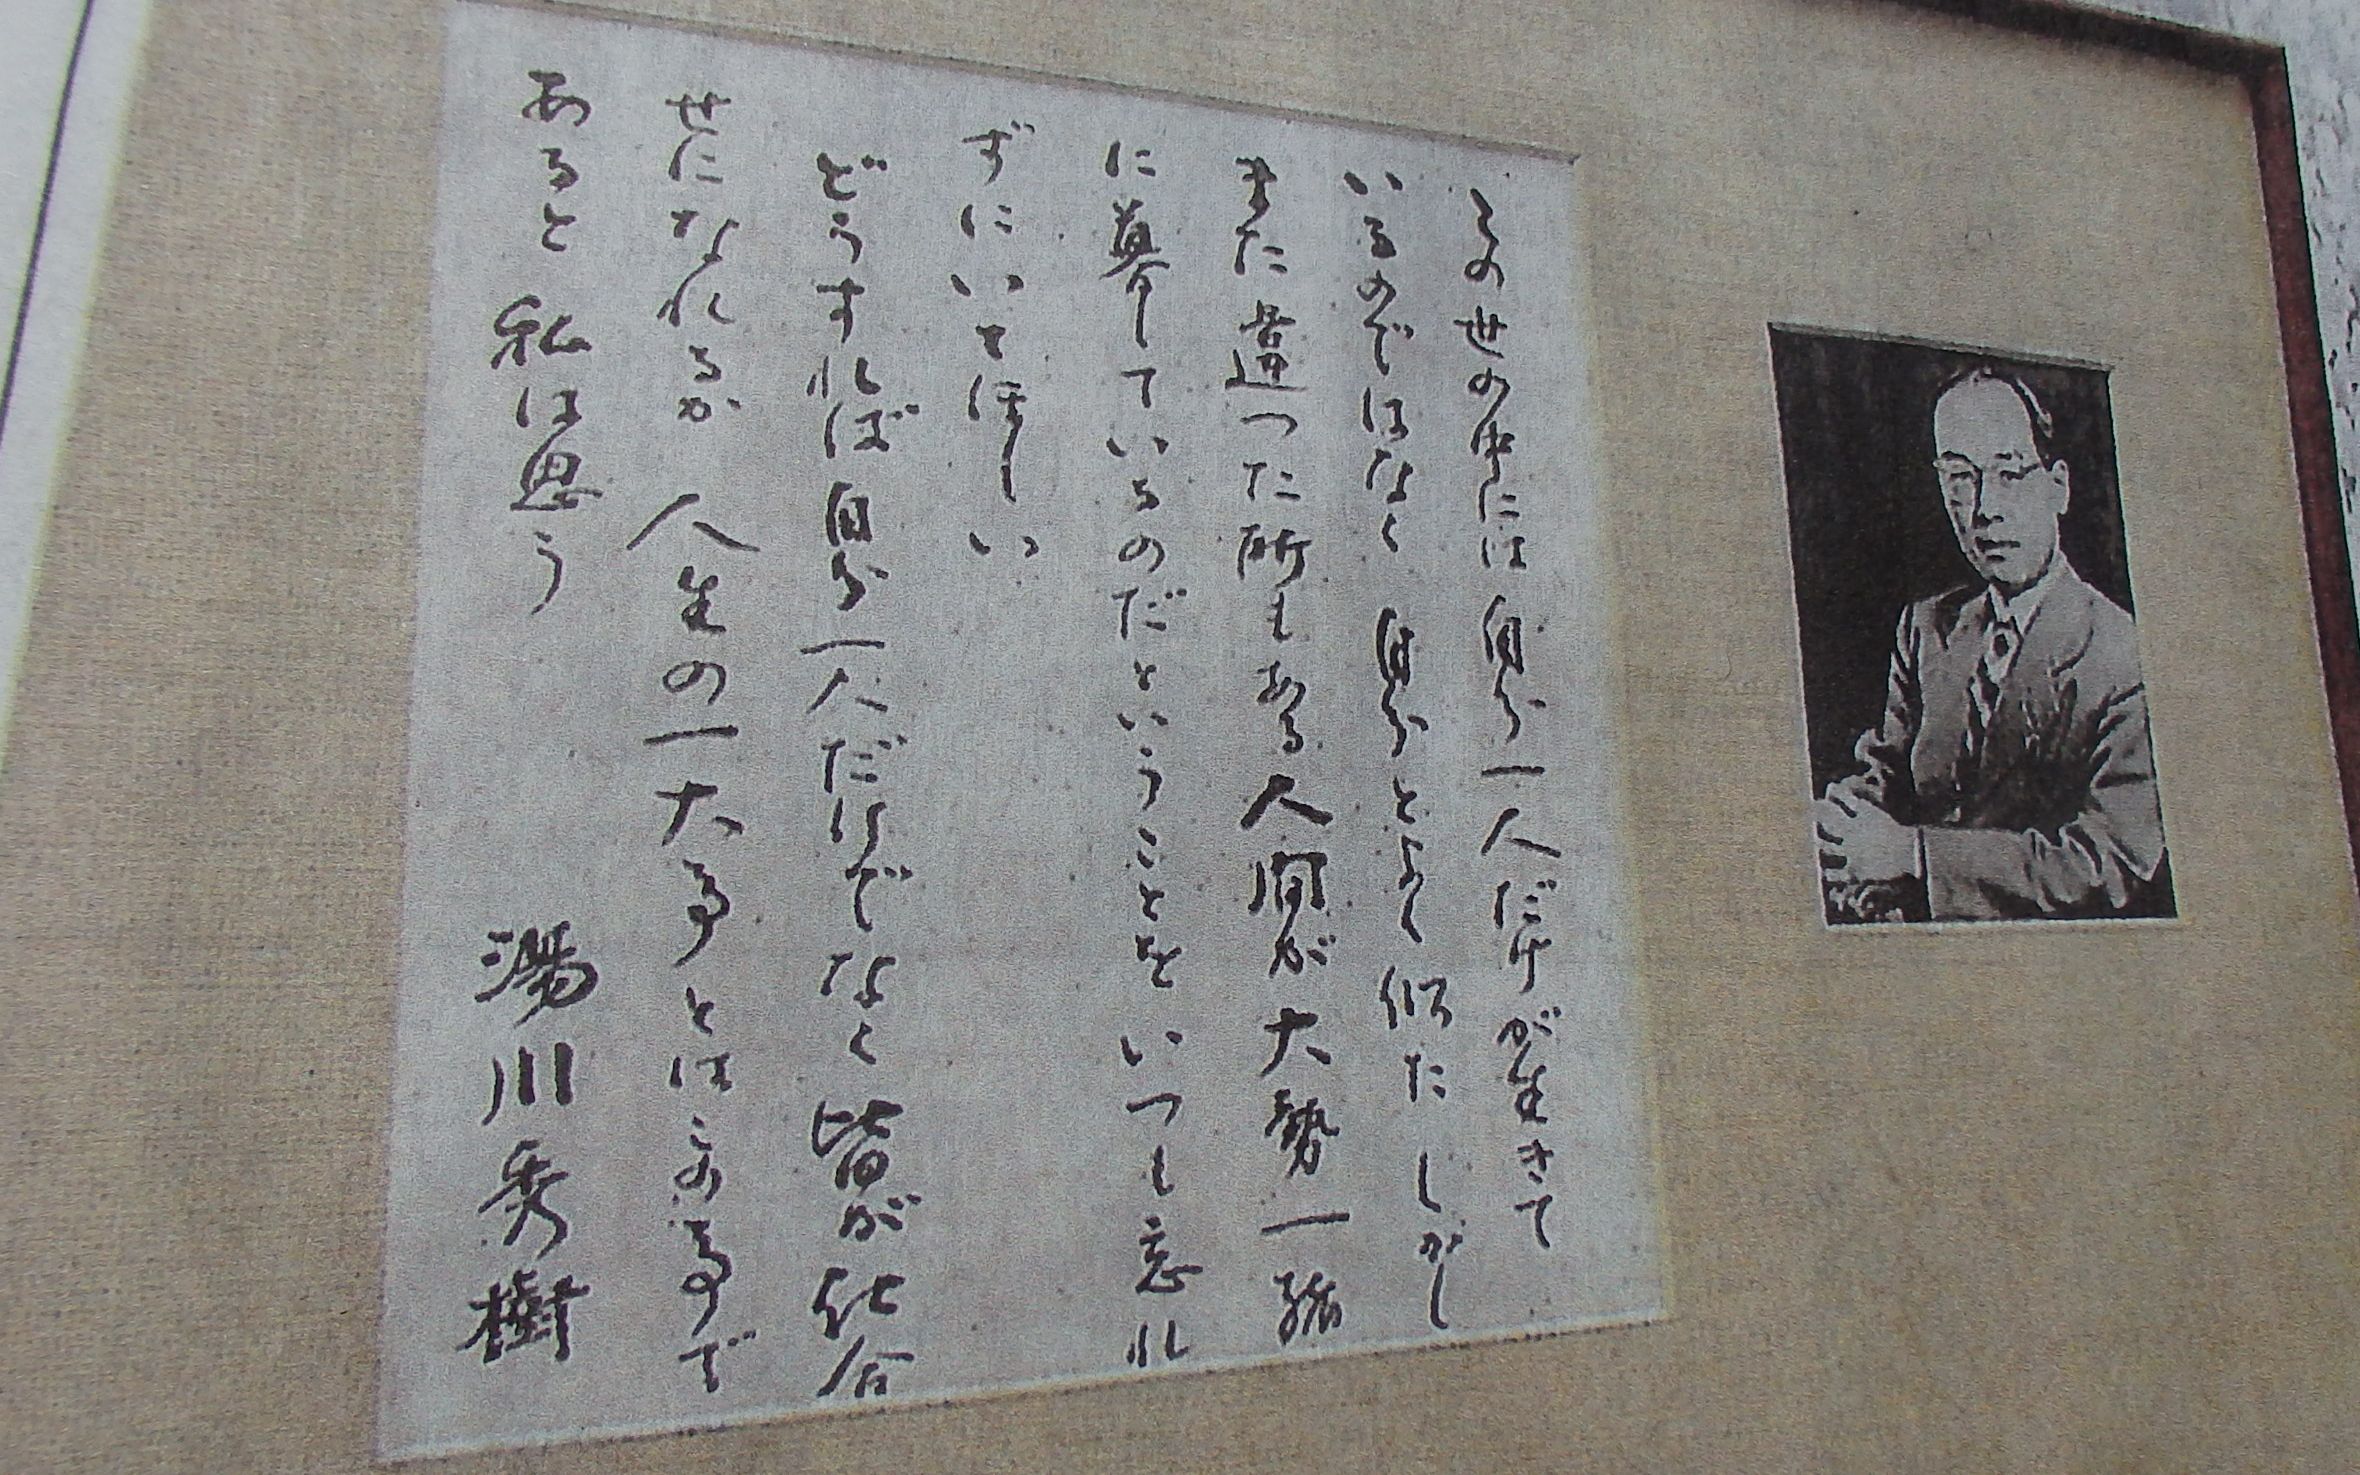 この世の中には自分一人だけが生きて
いるのではなく自分とよく似たしかし
また違った所もある人間が大勢一緒
に暮しているのだということをいつも忘れ
ずにいてほしい
どうすれば自分一人だけでなく皆が仕合
せになれるか人生の一大事とはこの事で
あると私は思う
湯川秀樹